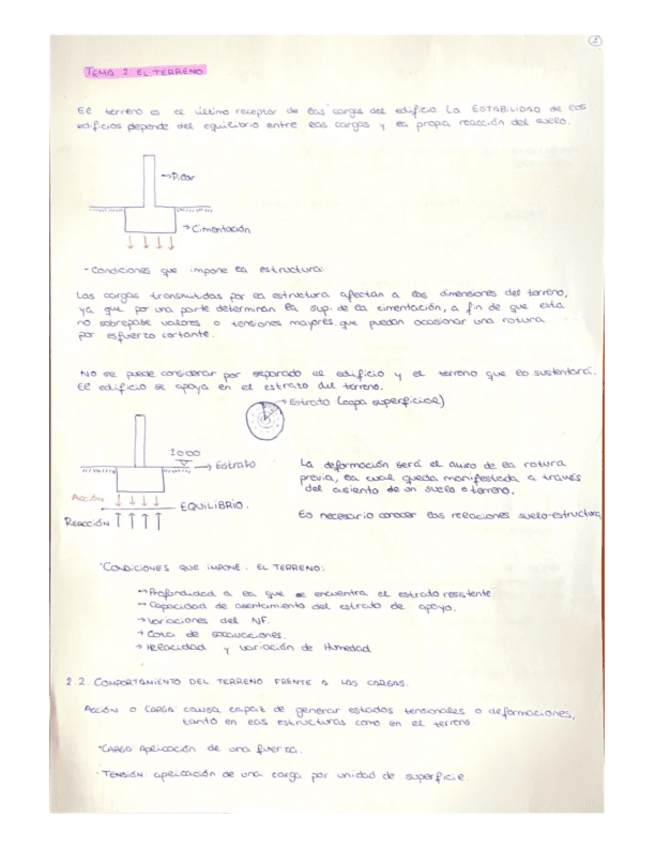 2
TEMA 2: EL TERRENO
El terreno es el último receptor de las cargas del edificio. La ESTABILIDAD de los
edificios depende del equilibrio entre las cargas y la propia reacción del suelo.
→Pilar
→Cimentación
- Condiciones que impone la estructura:
Las cargas transmitidas por la estructura afectan a las dimensiones del terreno,
ya que por una parte determinan la sup. de la cimentación, a fin de que esta
no sobrepase valores o tensiones mayores que puedan ocasionar una rotura
por esfuerzo cortante.
No se puede considerar por separado el edificio y el terreno que lo sustentará.
El edificio se apoya en el estrato del terreno.
→Estrato (capa superficial)
→ Estrato
La deformación será el aviso de la rotura
previa, la cual queda manifestada a través
del asiento de un suelo o terreno.
ACCIÓN
EQUILIBRIO.
REACCIÓN
Es necesario conocer las relaciones suelo-estructura
·CONDICIONES QUE IMPONE EL TERRENO:
→Profundidad a la que se encuentra el estrato resistente
→Capacidad de asentamiento del estrato de apoyo.
→Variaciones del NF.
→ Cota de socavaciones.
→ Heracidad y variación de Humedad
2.2. COMPORTAMIENTO DEL TERRENO FRENTE A LAS CARGAS.
ACCIÓN O CARGA: causa capaz de generar estados tensionales o deformaciones,
tanto en las estructuras como en el terreno
·CARGA: Aplicación de una fuerza.
· TENSIÓN: aplicación de una carga por unidad de superficie.